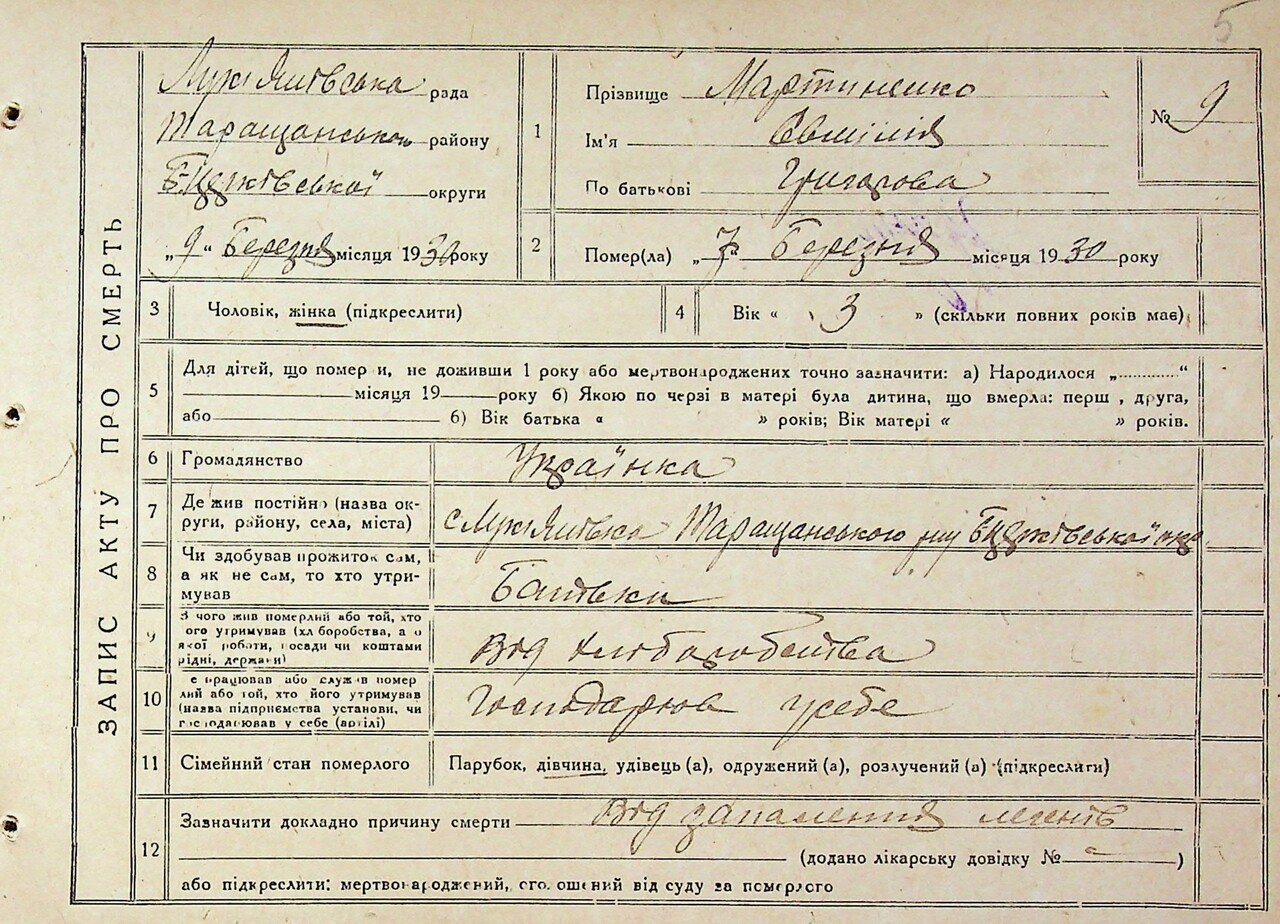 5
ЗАПИС АКТУ ПРО СМЕРТЬ
Лук'янівська рада
Таращанського району
округи
„9“ Березня місяця 1930 року
1
Прізвище Мартиненко
Ім'я
По батькові Григорова
№ 9
2
Помер(ла) „7“ Березня місяця 1930 року
3 Чоловік, жінка (підкреслити)
4 Вік « 3 » (скільки повних років має)
5
Для дітей, що помер и, не доживши 1 року або мертвонароджених точно зазначити: а) Народилося „.............“
місяця 19 року б) Якою по черзі в матері була дитина, що вмерла: перш , друга,
або 6) Вік батька « » років; Вік матері « » років.
6 Громадянство Українка
7
Де жив постійно (назва ок-
руги, району, села, міста)
с Лук'янівка Таращанського
8
Чи здобував прожиток сам,
а як не сам, то хто утри-
мував
Батьки
9
З чого жив померлий або той, хто
ого утримував (хл боробства, а о
якої роботи, посади чи коштами
рідні, держави)
Від хліборобства
10
е працював або служив помер
лий або той, хто його утримував
(назва підприємства установи, чи
господарював у себе (артілі)
Господарюв усебе
11 Сімейний стан померлого Парубок, дівчина, удівець (а), одружений (а), розлучений (а) (підкреслити)
12
Зазначити докладно причину смерти Від запалення легенів
(додано лікарську довідку № )
або підкреслити: мертвонароджений, оголошений від суду за померлого